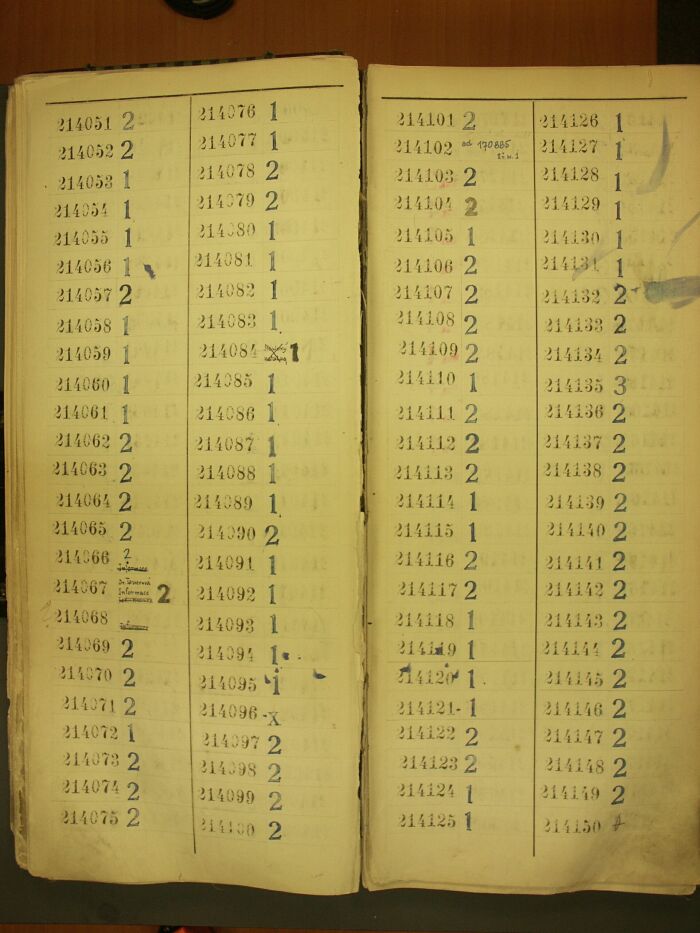 214051 2
214052 2
214053 1
214054 1
214055 1
214056 1
214057 2
214058 1
214059 1
214060 1
214061 1
214062 2
214063 2
214064 2
214065 2
214066 2
Informace
214067
Informace
2
214068
214069 2
214070 2
214071 2
214072 1
214073 2
214074 2
214075 2
214076 1
214077 1
214078 2
214079 2
214080 1
214081 1
214082 1
214083 1
214084 1
214085 1
214086 1
214087 1
214088 1
214089 1
214090 2
214091 1
214092 1
214093 1
214094 1
214095 1
214096 -x
214097 2
214098 2
214099 2
214100 2
214101 2
214102 od 170885
214103 2
214104 2
214105 1
214106 2
214107 2
214108 2
214109 2
214110 1
214111 2
214112 2
214113 2
214114 1
214115 1
214116 2
214117 2
214118 1
214119 1
214120 1
214121- 1
214122 2
214123 2
214124 1
214125 1
214126 1
214127 1
214128 1
214129 1
214130 1
214131 1
214132 2
214133 2
214134 2
214135 3
214136 2
214137 2
214138 2
214139 2
214140 2
214141 2
214142 2
214143 2
214144 2
214145 2
214146 2
214147 2
214148 2
214149 2
214150